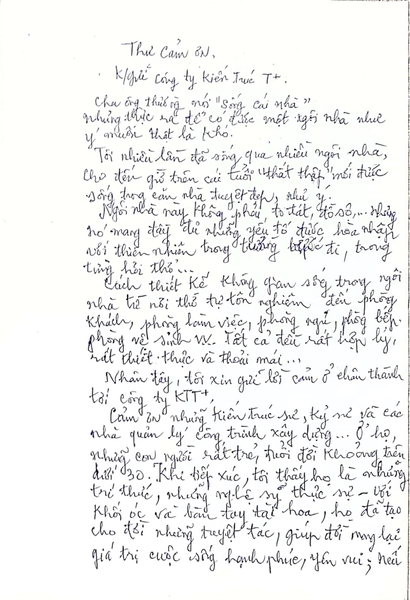 Thư Cảm ơn.
K/gửi Công ty Kiến Trúc T+.
Cha ông thường nói "sống cái nhà"
nhưng thực ra để có được một ngôi nhà như
ý muốn thật là khó.
Tôi nhiều lần đã sống qua nhiều ngôi nhà,
cho đến giờ trên cái tuổi "thất thập" mới được
sống trong căn nhà tuyệt đẹp, như ý.
Ngôi nhà này không phải to tát, đồ sộ,... nhưng
nó mang đầy đủ những yếu tố được hòa nhập
với thiên nhiên trong từng bước đi, trong
từng hơi thở...
Cách thiết kế không gian sống trong ngôi
nhà từ nơi thờ tự tôn nghiêm đến phòng
khách, phòng làm việc, phòng ngủ, phòng bếp
phòng vệ sinh vv. Tất cả đều rất hợp lý,
rất thiết thực và thoải mái...
Nhân đây, tôi xin gửi lời cảm ơn chân thành
tới công ty KTT+.
Cảm ơn những kiến trúc sư, kỹ sư và các
nhà quản lý công trình xây dựng... Ở họ,
những con người rất trẻ, tuổi đời khoảng trên
dưới 30. Khi tiếp xúc, tôi thấy họ là những
trí thức, những nghệ sỹ thực sự - với
khối óc và bàn tay tài hoa, họ đã tạo
cho đời những tuyệt tác, giúp đời mang lại
giá trị cuộc sống hạnh phúc, yên vui;